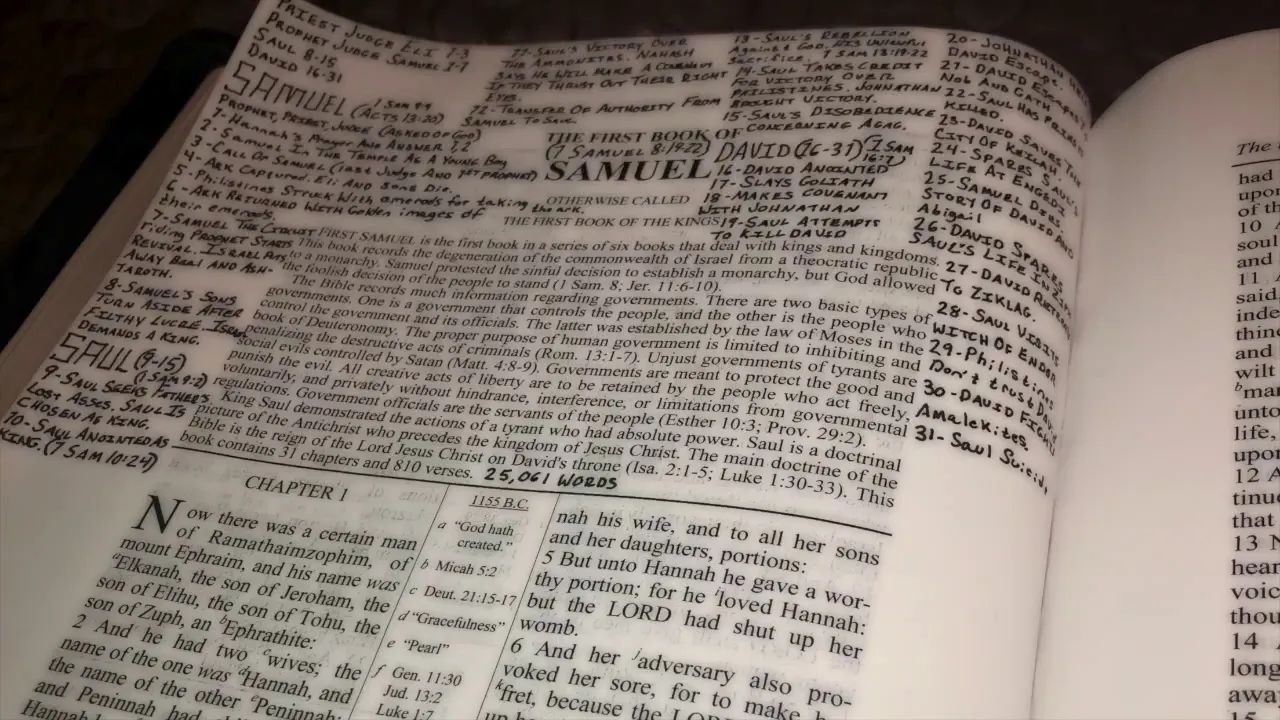 PRIEST JUDGE ELI 1-3
PROPHET JUDGE SAMUEL 1-7
SAUL 8-15
DAVID 16-31
SAMUEL (1 SAM 9:9
(ACTS 13:20)
PROPHET, PRIEST, JUDGE (ASKED OF GOD)
1- Hannah's Prayer AND ANSWER 1,2
2- SAMUEL IN THE TEMPLE AS A YOUNG BOY
3- CALL OF SAMUEL (last Judge AND 1ST PROPHET)
4- ARK CAPTURED. Eli AND sons Die.
5- Philistines STRUCK With emerods for taking the ark.
6- ARK RETURNED WITH Golden images of
their emerods.
7- SAMUEL THE CIRCUIT
riding PROPHET STARTS
REVIVAL. ISRAEL PUTS
AWAY BAAL AND ASH-
TAROTH.
8- SAMUEL'S SONS
TURN ASIDE AFTER
FILTHY LUCRE. ISRAEL
DEMANDS A KING.
SAUL (9-15)
(1 SAM 9:2)
9- SAUL SEEKS FATHER'S
LOST ASSES. SAUL IS
CHOSEN AS KING.
10- SAUL ANOINTED AS
KING. (1 SAM 10:24)
11- SAUL'S VICTORY OVER
THE AMMONITES. NAHASH
SAYS HE WILL MAKE A COVENANT
IF THEY THRUST OUT THEIR RIGHT
EYES.
12- TRANSFER OF AUTHORITY FROM
SAMUEL TO SAUL
13- SAUL'S REBELLION
AGAINST GOD, HIS UNLAWFUL
Sacrifice. 1 SAM 13:19-22
14- SAUL TAKES CREDIT
FOR VICTORY OVER
PHILISTINES. JOHNATHAN
BROUGHT VICTORY.
15- SAUL'S DISOBEDIENCE
CONCERNING AGAG.
DAVID (16-31) (1 SAM
16:7)
16- DAVID ANOINTED
17- SLAYS GOLIATH
18- MAKES COVENANT
WITH JOHNATHAN
19- SAUL ATTEMPTS
TO KILL DAVID
20- JOHNATHAN
DAVID Escape.
21- DAVID Escapes to
Nob AND GATH
22- SAUL HAS PRIESTS
KILLED.
23- DAVID SAVES THE
CITY OF KEILAH.
24- SPARES SAUL'S
LIFE AT ENGEDI
25- SAMUEL DIES
STORY OF DAVID AND
Abigail
26- DAVID SPARES
SAUL'S LIFE IN ZIPH
27- DAVID
TO ZIKLAG.
28- SAUL VISITS
WITCH OF ENDOR
29- Philistines
Don't trust David
30- DAVID FIGHTS
Amalekites.
31- Saul Suicide
THE FIRST BOOK OF
(1 SAMUEL 8:19-22)
SAMUEL
OTHERWISE CALLED
THE FIRST BOOK OF THE KINGS
FIRST SAMUEL is the first book in a series of six books that deal with kings and kingdoms.
This book records the degeneration of the commonwealth of Israel from a theocratic republic
to a monarchy. Samuel protested the sinful decision to establish a monarchy, but God allowed
the foolish decision of the people to stand (1 Sam. 8; Jer. 11:6-10).
The Bible records much information regarding governments. There are two basic types of
governments. One is a government that controls the people, and the other is the people who
control the government and its officials. The latter was established by the law of Moses in the
book of Deuteronomy. The proper purpose of human government is limited to inhibiting and
penalizing the destructive acts of criminals (Rom. 13:1-7). Unjust governments of tyrants are
social evils controlled by Satan (Matt. 4:8-9). Governments are meant to protect the good and
punish the evil. All creative acts of liberty are to be retained by the people who act freely,
voluntarily, and privately without hindrance, interference, or limitations from governmental
regulations. Government officials are the servants of the people (Esther 10:3; Prov. 29:2).
King Saul demonstrated the actions of a tyrant who had absolute power. Saul is a doctrinal
picture of the Antichrist who precedes the kingdom of Jesus Christ. The main doctrine of the
Bible is the reign of the Lord Jesus Christ on David's throne (Isa. 2:1-5; Luke 1:30-33). This
book contains 31 chapters and 810 verses. 25,061 WORDS
CHAPTER 1
Now there was a certain man
of Ramathaimzophim, of
mount Ephraim, and his name was
aElkanah, the son of Jeroham, the
son of Elihu, the son of Tohu, the
son of Zuph, an bEphrathite:
2 And he had two cwives; the
name of the one was dHannah, and
the name of the other ePeninnah:
and Peninnah had
Hannah
1155 B.C.
a "God hath
created."
b Micah 5:2
c Deut. 21:15-17
d "Gracefulness"
e "Pearl"
f Gen. 11:30
Jud. 13:2
Luke 1:7
nah his wife, and to all her sons
and her daughters, portions:
5 But unto Hannah he gave a wor-
thy portion; for he iloved Hannah:
but the LORD had shut up her
womb.
6 And her jadversary also pro-
voked her sore, for to make h
kfret, because the LO
up he
The
had
upon
of th
10 A
soul
and
11 A
said
inde
thin
and
wilt
bman
unto
life,
upon
12 A
tinue
that
13 N
hear
voic
thou
14
long
awa
15